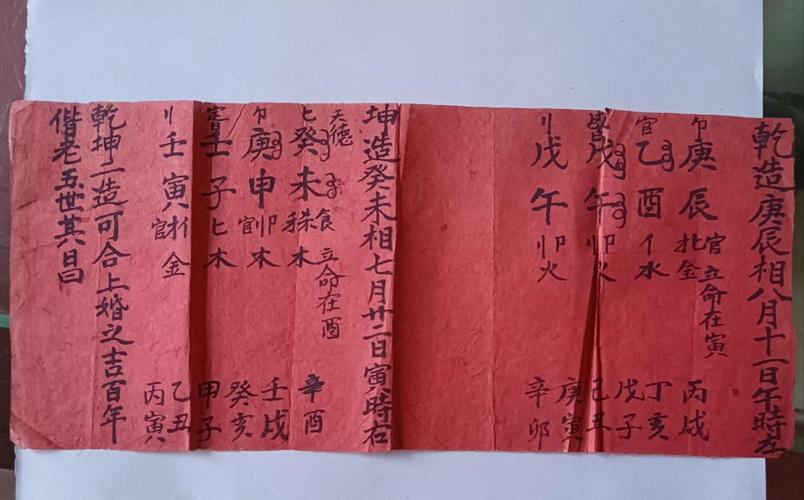 乾造庚辰相八月十一日午時左
官立命在寅
庚辰 金 丙戌
官乙酉 水 丁亥
戊子
戊午 火 己丑
庚寅
戊午 火 辛卯
坤造癸未相七月廿二日寅時右
天德 食 立命在酉
癸未 木 辛酉
庚申 官 木 壬戌
癸亥
壬子 木 甲子
乙丑
壬寅 官 金 丙寅
乾坤二造可合上婚之吉百年
偕老五世其昌